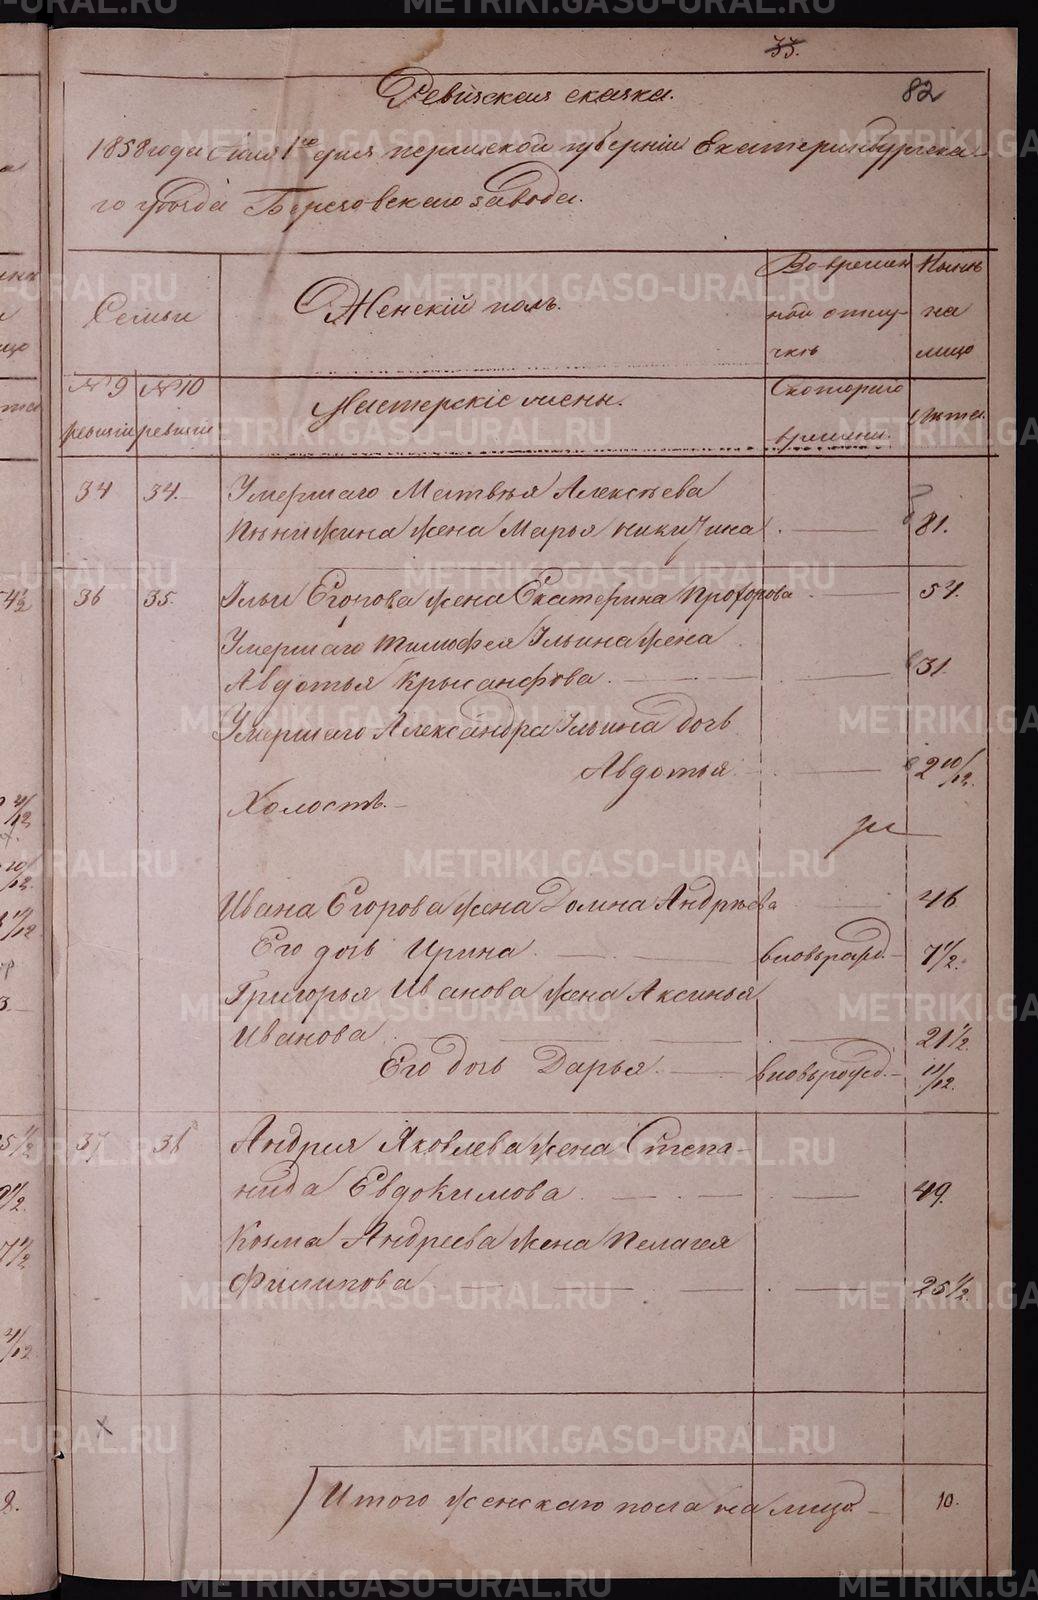 33.
82
Ревизская сказка.
1858 года Юля 1го дня пермской губернии Екатеринбургска-
го уезда Березовскаго завода.
Семьи
Женскій полъ.
Во времен
ной отлу-
чкѣ
Нынѣ
на
лицо
№ 9
ревизіи
№ 10
ревизіи
Мастерскіе жены.
Скотораго
времени.
Лѣта.
34 34. Умершаго Матвѣя Алексѣева
жена Марья Никитина 81.
36 35. Ильи Егорова жена Екатерина Прохорова 54.
Умершаго Тимофея Ильина жена
Авдотья Крысанфова. 31.
Умершаго Александра Ильина дочь
Авдотья. 2 10/12.
Холостъ.
Ивана Егорова жена Домна Андрѣева 46
Его дочь Ирина. вновьрожд. 7 1/2.
Григорья Иванова жена Аксинья
Иванова 21 1/2.
Его дочь Дарья. вновьрожд. 11/12.
37 36 Андрия Яковлева жена Степа-
нида Евдокимова 49.
Козма Андреева жена Пелагея
Филипова 25 1/2.
Итого женскаго пола на лицо 10.
METRIKI.GASO-URAL.RU